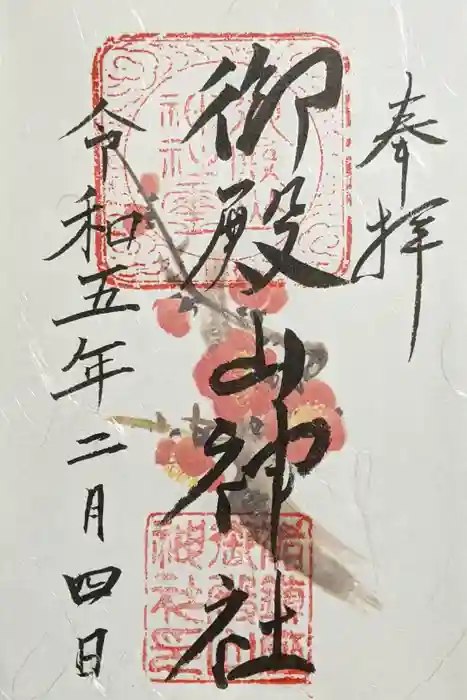 奉拝
御殿山神社
令和五年二月四日